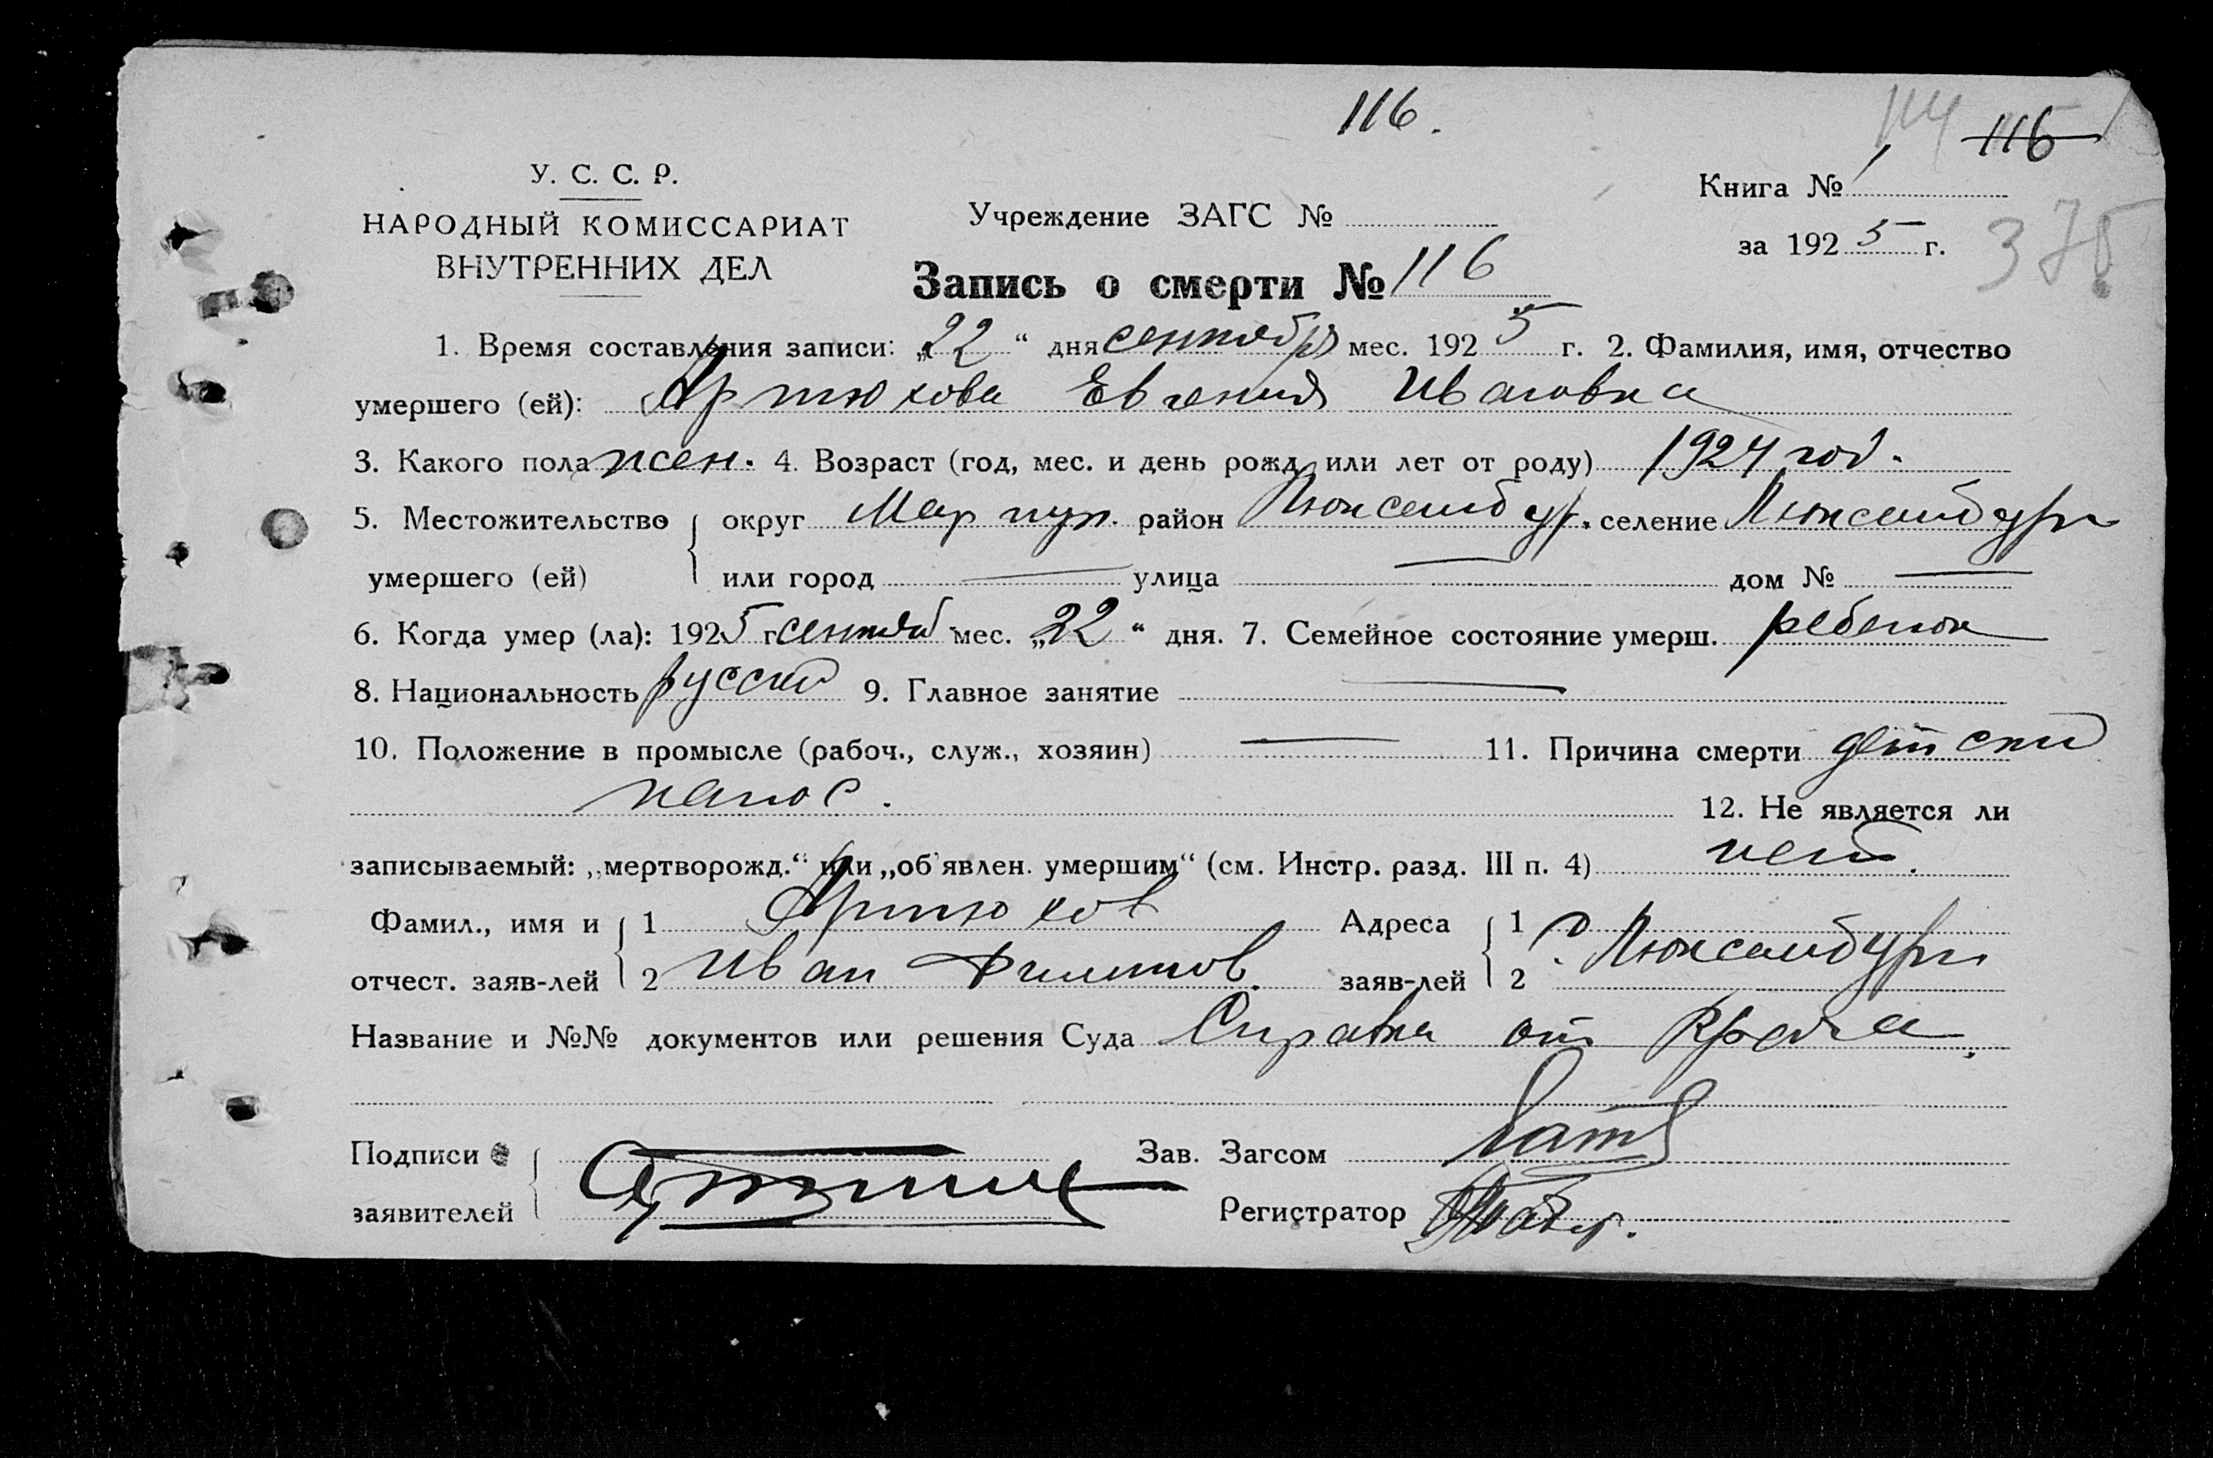 116.
114 116
У. С. С. Р.
НАРОДНЫЙ КОМИССАРИАТ
ВНУТРЕННИХ ДЕЛ
Учреждение ЗАГС №
Книга № 1
за 1925 г.
375
Запись о смерти № 116
1. Время составления записи: „22“ дня сентября мес. 1925 г. 2. Фамилия, имя, отчество
умершего (ей): Артюхова Евгения Ивановна
3. Какого пола жен. 4. Возраст (год, мес. и день рожд. или лет от роду) 1924 год.
5. Местожительство округ Мариуп. район Люксембур. селение Люксембург
умершего (ей) или город — улица — дом № —
6. Когда умер (ла): 1925 г. сентяб мес. „22“ дня. 7. Семейное состояние умерш. ребенок
8. Национальность русский 9. Главное занятие —
10. Положение в промысле (рабоч., служ., хозяин) — 11. Причина смерти детский
понос.
12. Не является ли
записываемый: „мертворожд.“ или „об'явлен. умершим“ (см. Инстр. разд. III п. 4) нет.
Фамил., имя и 1 Артюхов Адреса 1 с. Люксембург
отчест. заяв-лей 2 Иван Филипов. заяв-лей 2
Название и №№ документов или решения Суда Справка от врача.
Подписи Зав. Загсом
заявителей Регистратор